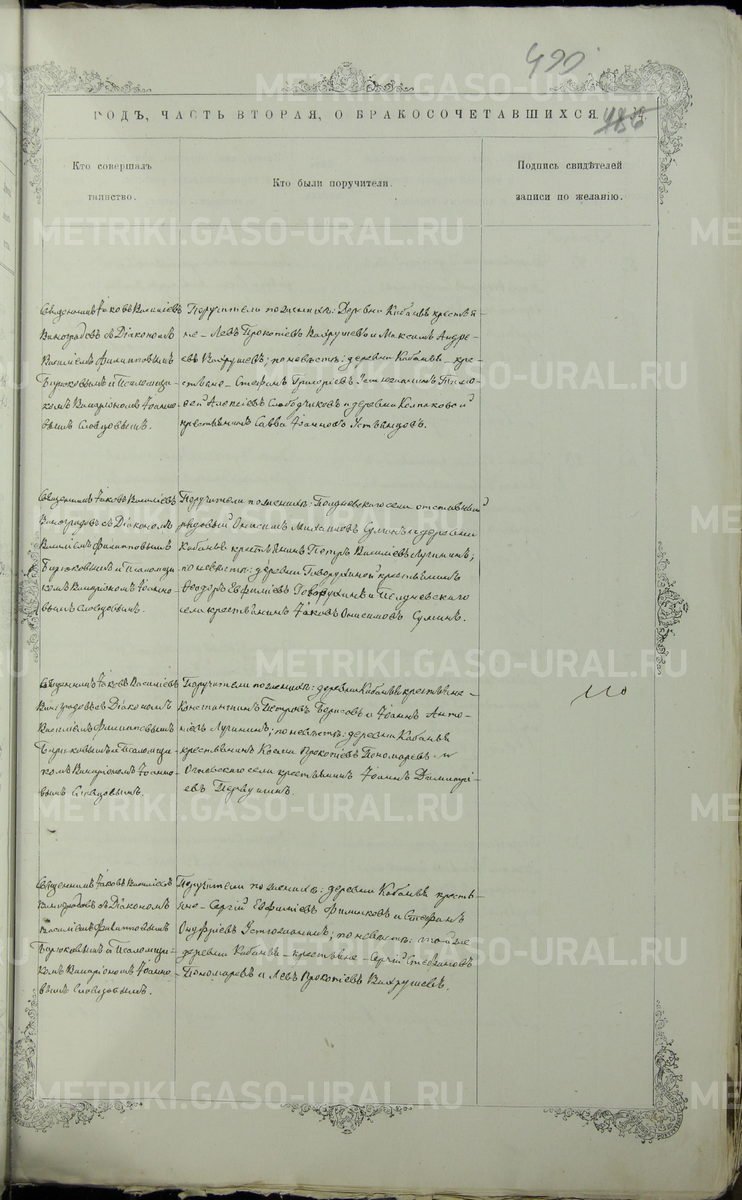 490
РОДЪ, ЧАСТЬ ВТОРАЯ, О БРАКОСОЧЕТАВШИХСЯ.
Кто совершалъ
таинство.
Кто были поручители.
Подпись свидѣтелей
записи по желанію.
Священникъ Іаковъ Василіевъ
Виноградовъ съ Діакономъ
Василіемъ Филипповымъ
Бирюковымъ и Псаломщи-
комъ Иларіономъ Іоанно-
вымъ Словцовымъ.
Поручители по женихѣ: деревни Кабановъ крестья-
не – Левъ Прокопіевъ Вахрушевъ и Максимъ Андре-
евъ Вахрушевъ; по невѣстѣ: деревни Кабановъ – кре-
стьяне – Стефанъ Григоріевъ
Алексіевъ Слободчиковъ и деревни Колпаковой
крестьянинъ Савва Іоанновъ
Священникъ Іаковъ Василіевъ
Виноградовъ съ Діакономъ
Василіемъ Филипповымъ
Бирюковымъ и Псаломщи-
комъ Иларіономъ Іоанно-
вымъ Словцовымъ.
Поручители по женихѣ: села отставный
рядовый Онисимъ Михаиловъ Суминъ и деревни
Кабановъ крестьянинъ Петръ Василіевъ Лугининъ;
по невѣстѣ: деревни Говорухиной крестьянинъ
Ѳеодоръ Евфиміевъ Говорухинъ и
села крестьянинъ Іаковъ Онисимовъ Суминъ.
Священникъ Іаковъ Василіевъ
Виноградовъ съ Діакономъ
Василіемъ Филипповымъ
Бирюковымъ и Псаломщи-
комъ Иларіономъ Іоанно-
вымъ Словцовымъ.
Поручители по женихѣ: деревни Кабановъ крестьяне –
Константинъ Петровъ Борисовъ и Іоаннъ Анто-
ніевъ Лугининъ; по невѣстѣ: деревни Кабановъ
крестьянинъ Косма Прокопіевъ Пономаревъ и
села крестьянинъ Іоаннъ Димитрі-
евъ Первушинъ.
Священникъ Іаковъ Василіевъ
Виноградовъ съ Діакономъ
Василіемъ Филипповымъ
Бирюковымъ и Псаломщи-
комъ Иларіономъ Іоанно-
вымъ Словцовымъ.
Поручители по женихѣ: деревни Кабановъ кресть-
яне – Сергій Евфиміевъ и Стефанъ
Онуфріевъ по невѣстѣ: той же
деревни Кабановъ – крестьяне – Сергій Стефановъ
Пономаревъ и Левъ Прокопіевъ Вахрушевъ.
METRIKI.GASO-URAL.RU